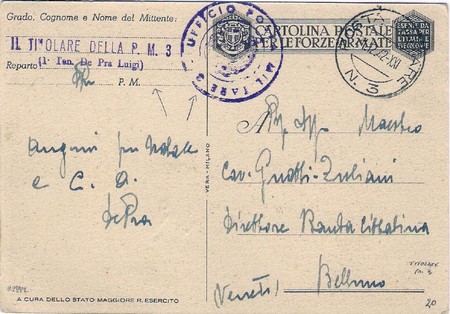 Grado, Cognome e Nome del Mittente:
IL TITOLARE DELLA P. M. 3
(1° Ten. De Pra Luigi)
Reparto
P. M.
UFFICIO POSTA MILITARE 3
CARTOLINA POSTALE
PER LE FORZE ARMATE
ESENTE DA
TASSA PER
POSTA MILITARE
N. 3
Auguri per Natale
e C. A.
De Pra
Maestro
Cav.
Direttore Banda Cittadina
Belluno
(Veneto)
VERA - MILANO
TITOLARE
P.M. 3
20
A CURA DELLO STATO MAGGIORE R. ESERCITO